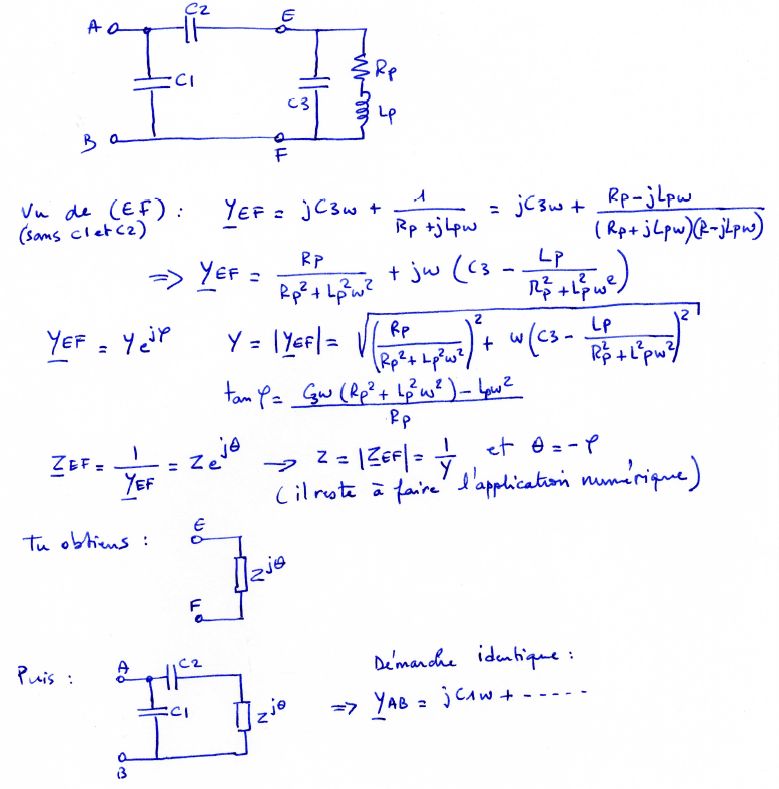 C2
A
E
C1
C3
Rp
Lp
B
F
Vu de (EF) : YEF = jC3ω + 1/(Rp + jLpω) = jC3ω + (Rp - jLpω)/((Rp + jLpω)(R - jLpω))
(sans C1 et C2)
⇒ YEF = Rp/(Rp² + Lp²ω²) + jω (C3 - Lp/(Rp² + Lp²ω²))
YEF = Y e^jφ Y = |YEF| = √((Rp/(Rp² + Lp²ω²))² + ω(C3 - Lp/(Rp² + L²pω²))²)
tan φ = (C3ω (Rp² + Lp²ω²) - Lpω²)/Rp
ZEF = 1/YEF = Z e^jθ → Z = |ZEF| = 1/Y et θ = -φ
(il reste à faire l'application numérique)
Tu obtiens :
E
Z^jθ
F
Puis :
A
C2
C1
Z^jθ
B
Démarche identique :
⇒ YAB = jC1ω + - - - - -